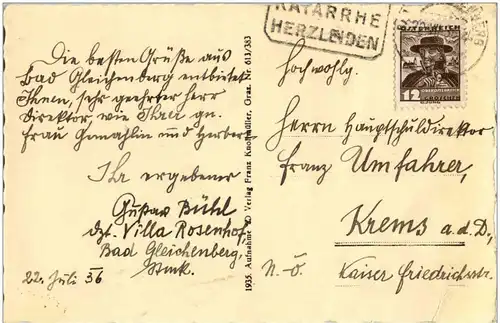 Die besten Grüße aus
Bad Gleichenberg entbietet
Ihnen, sehr geehrter Herr
Direktor, wie Ihrer gn.
Frau Gemahlin und Herbert
Ihr ergebener
Gustav Bühl
dzt. Villa Rosenhof,
Bad Gleichenberg,
Stmk.
22. Juli 36
1935. Aufnahme u. Verlag Franz Knollmüller, Graz. Nr. 613/383
KATARRHE
HERZLEIDEN
ÖSTERREICH
OBERÖSTERREICH
12 GROSCHEN
Hochwohlg.
Herrn Hauptschuldirektor
Franz Umfahrer,
Krems a.d.D.,
N.-Ö. Kaiser Friedrichstr.